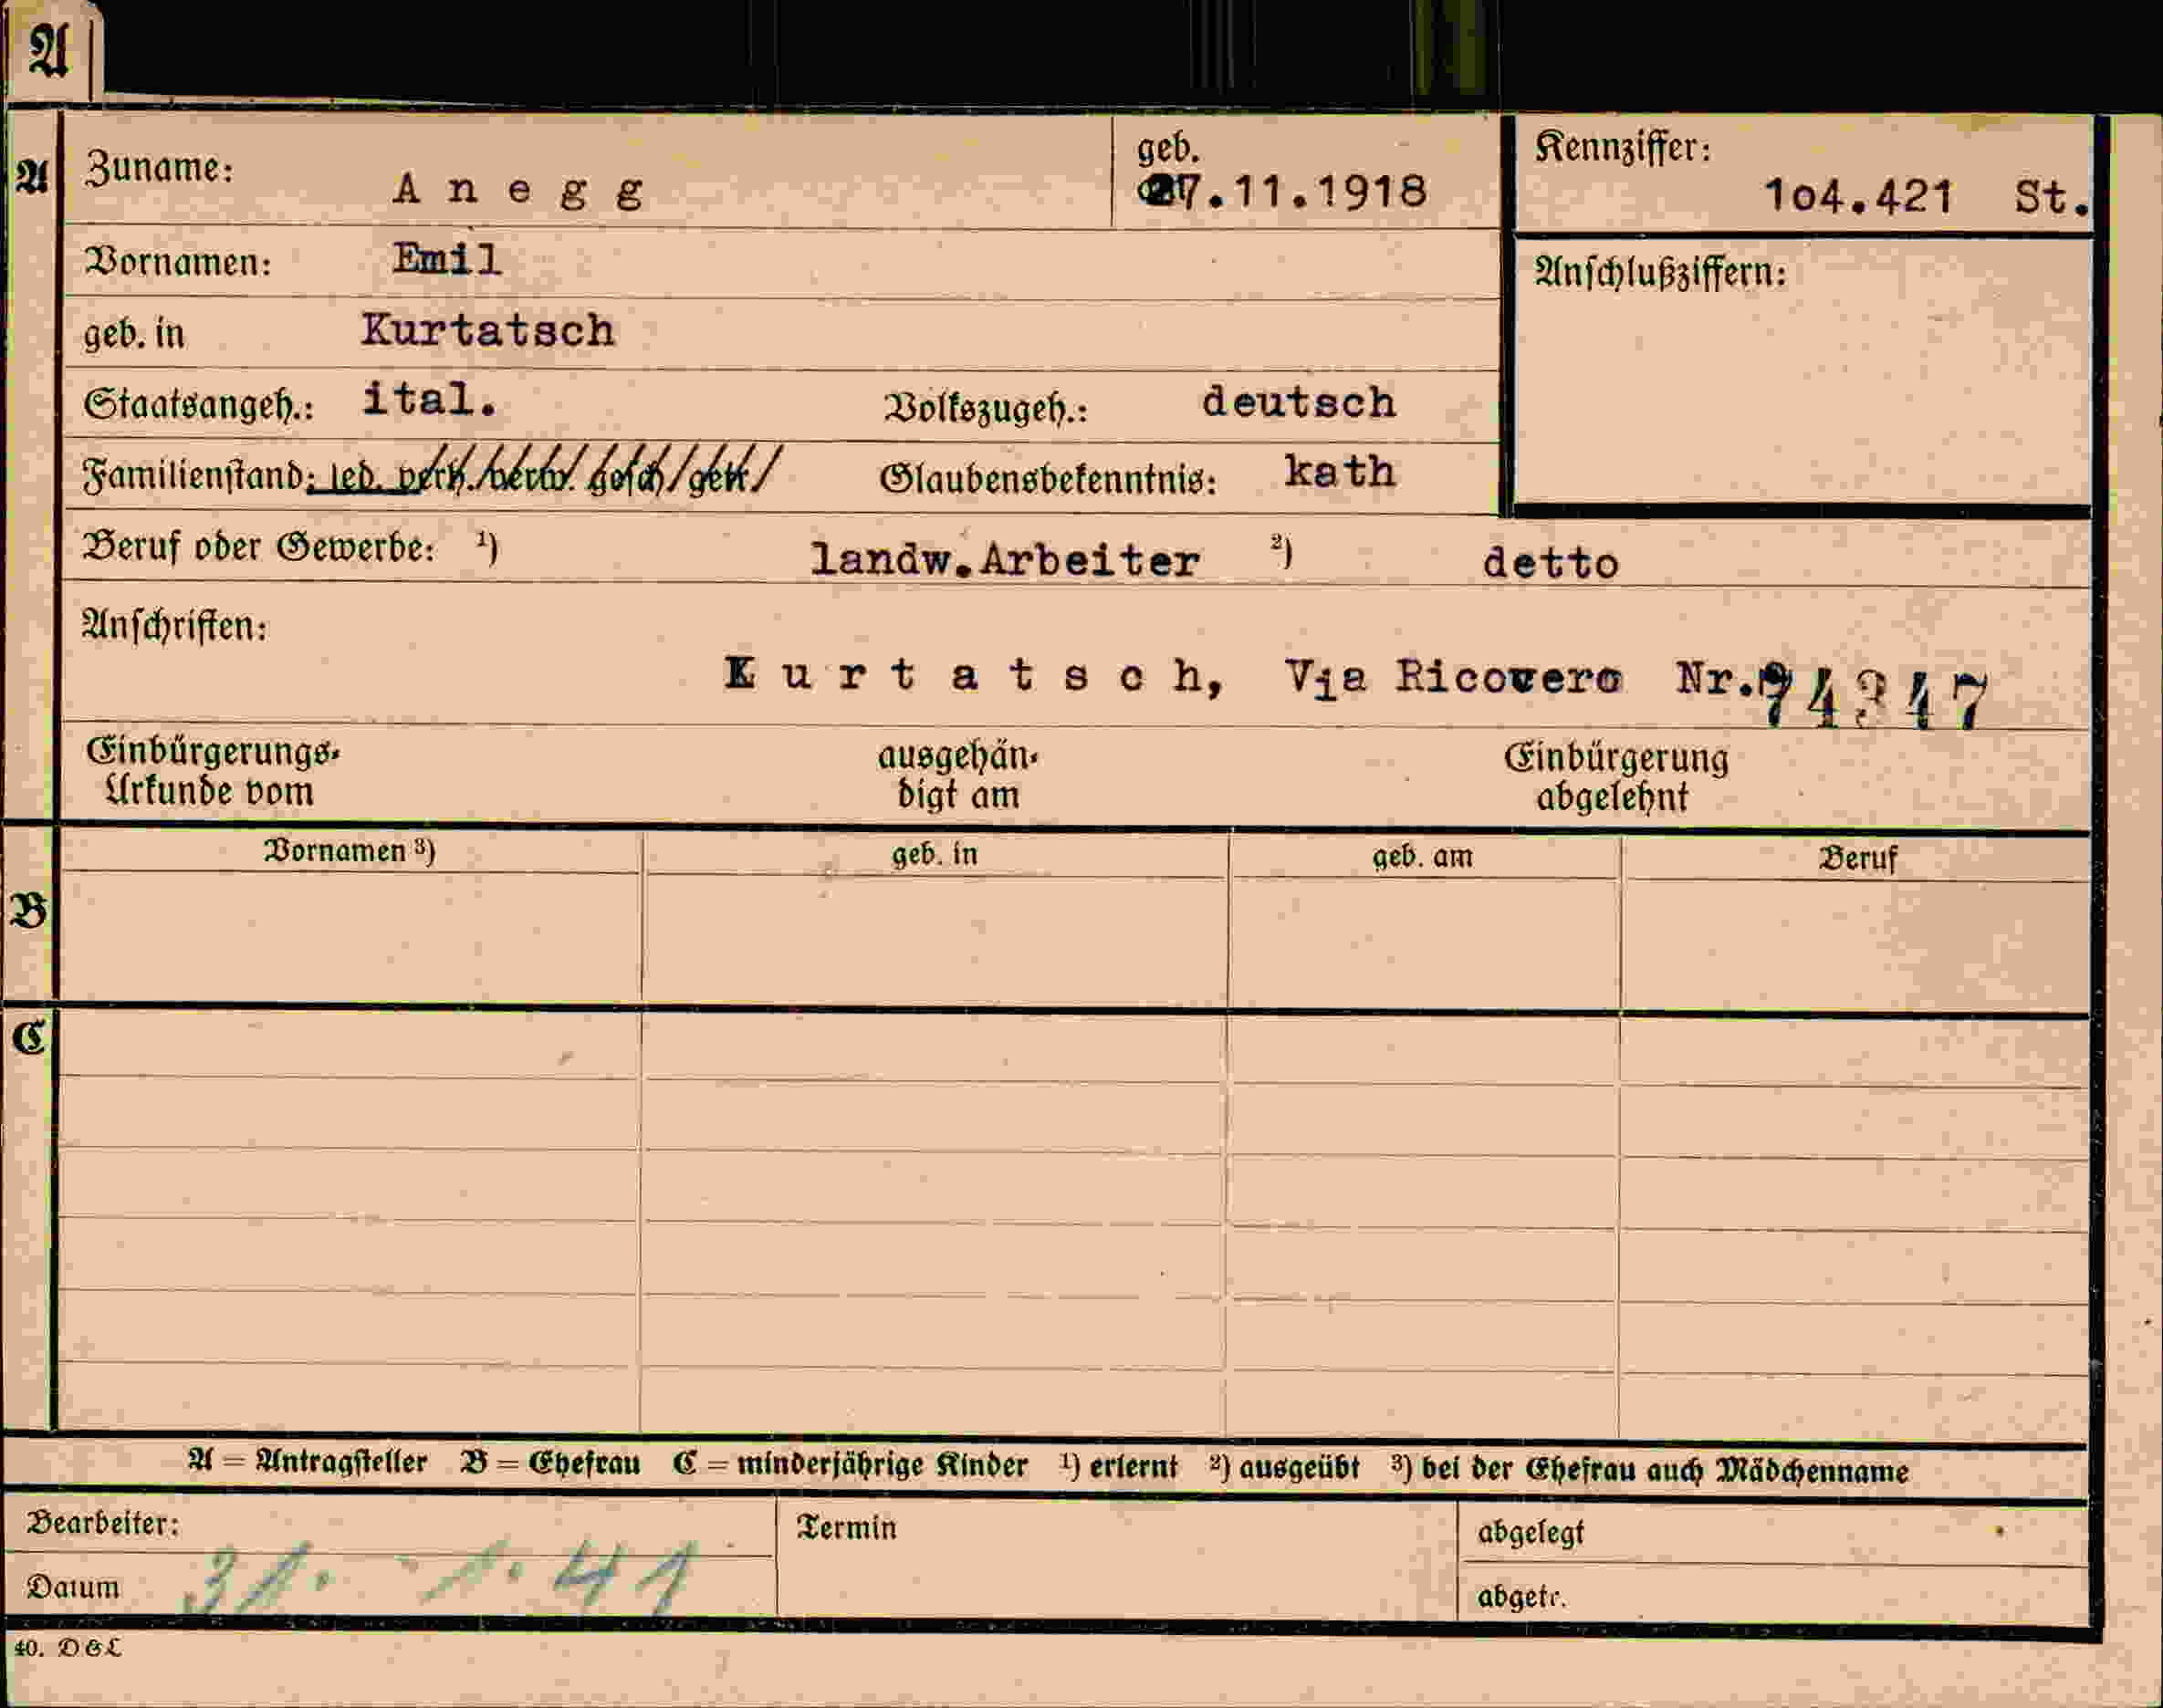 A
A
Zuname: Anegg
geb. 27.11.1918
Kennziffer: 1o4.421 St.
Vornamen: Emil
Anschlußziffern:
geb. in Kurtatsch
Staatsangeh.: ital. Volkszugeh.: deutsch
Familienstand: led. verh. verw. gesch. getr. Glaubensbekenntnis: kath
Beruf oder Gewerbe: ¹) landw.Arbeiter ²) detto
Anschriften:
Kurtatsch, Via Ricovero Nr.
Einbürgerungs-
Urkunde vom
ausgehän-
digt am
Einbürgerung
abgelehnt
B
Vornamen ³) geb. in geb. am Beruf
C
A = Antragsteller B = Ehefrau C = minderjährige Kinder ¹) erlernt ²) ausgeübt ³) bei der Ehefrau auch Mädchenname
Bearbeiter: Termin abgelegt
Datum 31. 1. 41 abgetr.
40. D&L